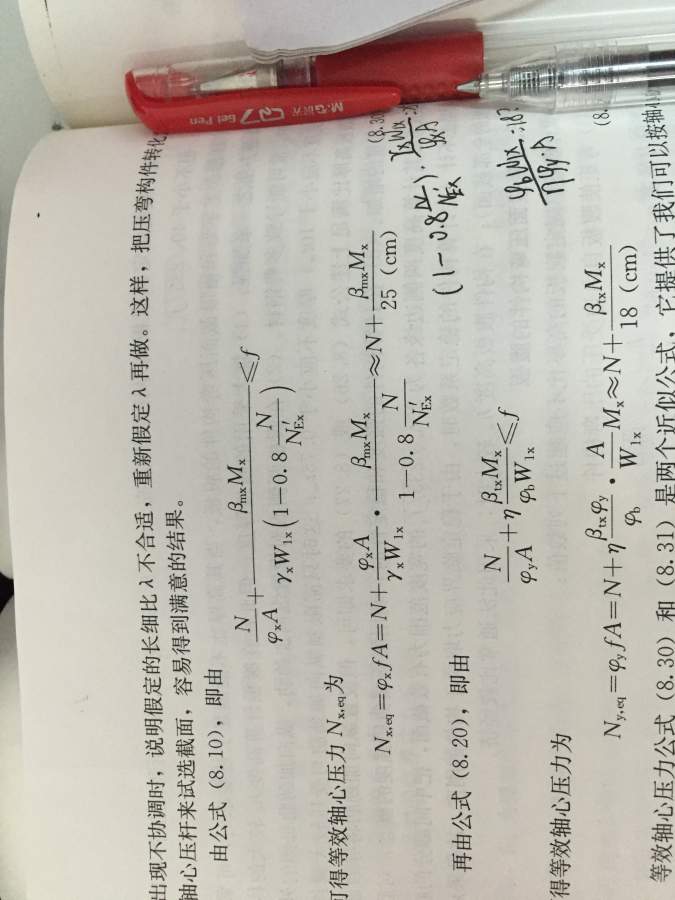 出现不协调时，说明假定的长细比 λ 不合适，重新假定 λ 再做。这样，把压弯构件转化
轴心压杆来试选截面，容易得到满意的结果。
由公式（8.10），即由
N/(φₓA) + βₘₓMₓ/(γₓW₁ₓ(1−0.8 N/N′Eₓ)) ⩽ f
可得等效轴心压力 Nₓ,eq 为
Nₓ,eq = φₓfA = N + φₓA/(γₓW₁ₓ) · βₘₓMₓ/(1−0.8 N/N′Eₓ) ≈ N + βₘₓMₓ/25（cm） (8.30
(1−0.8 N/NEx) · γxW1x/φxA
再由公式（8.20），即由
N/(φyA) + η βtxMₓ/(φbW₁ₓ) ⩽ f
φbW1x/ηφy·A
得等效轴心压力为
Ny,eq = φyfA = N + η βtxφy/φb · A/W₁ₓ Mₓ ≈ N + βtxMₓ/18（cm） (8.
等效轴心压力公式（8.30）和（8.31）是两个近似公式，它提供了我们可以按轴心
M&G 晨光 Q7 Gel Pen